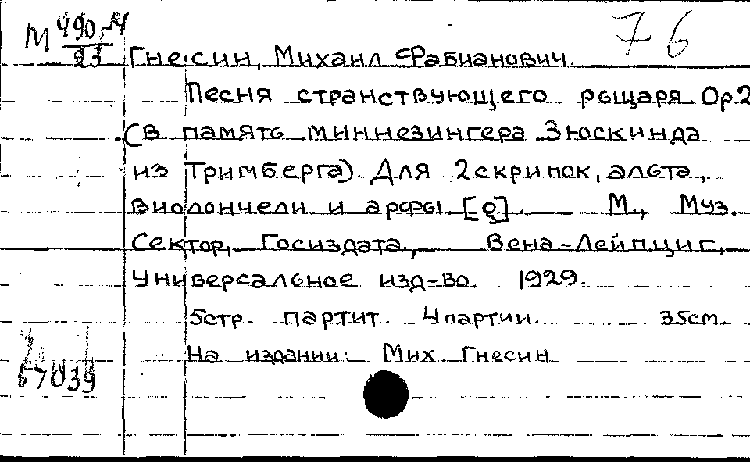 М 490/23 76
Гнесин, Михаил Фабианович.
Песня странствующего рыцаря Op.2
(в память миннезингера Зюскинда
из Тримберга) Для 2 скрипок, альта,
виолончели и арфы. М., Муз.
Сектор, Госиздата, Вена-Лейпциг,
Универсальное изд-во. 1929.
5стр. партит. 4 партии. 35см.
На издании: Мих. Гнесин
67039